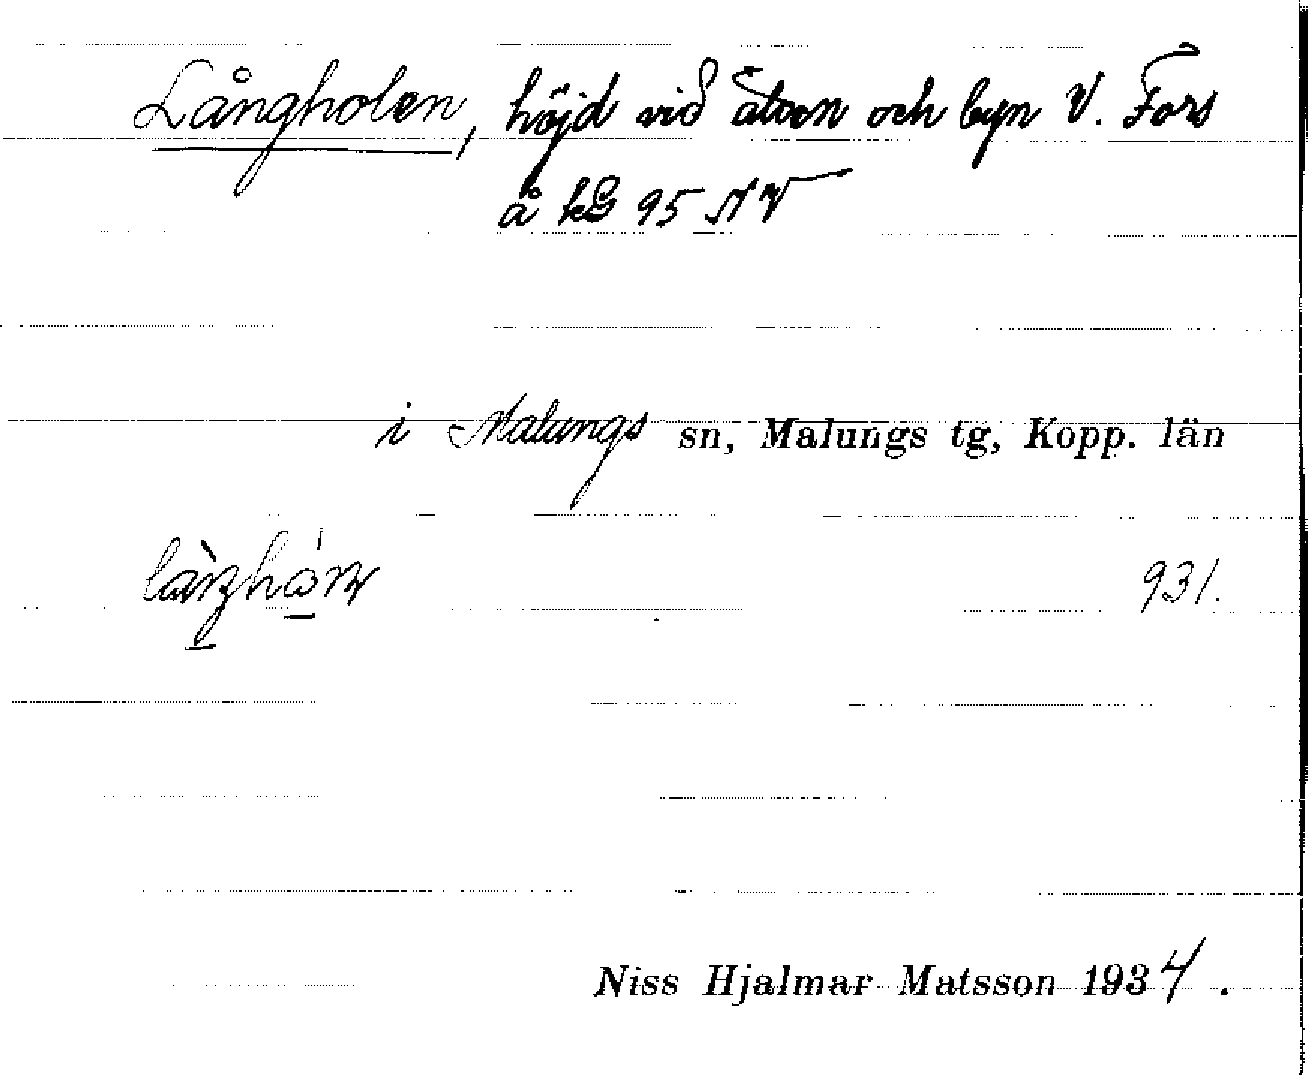 Långholen, höjd vid älven och byn V. Fors
å kG 95 NV
i Malungs sn, Malungs tg, Kopp. län
931.
Niss Hjalmar Matsson 1934.